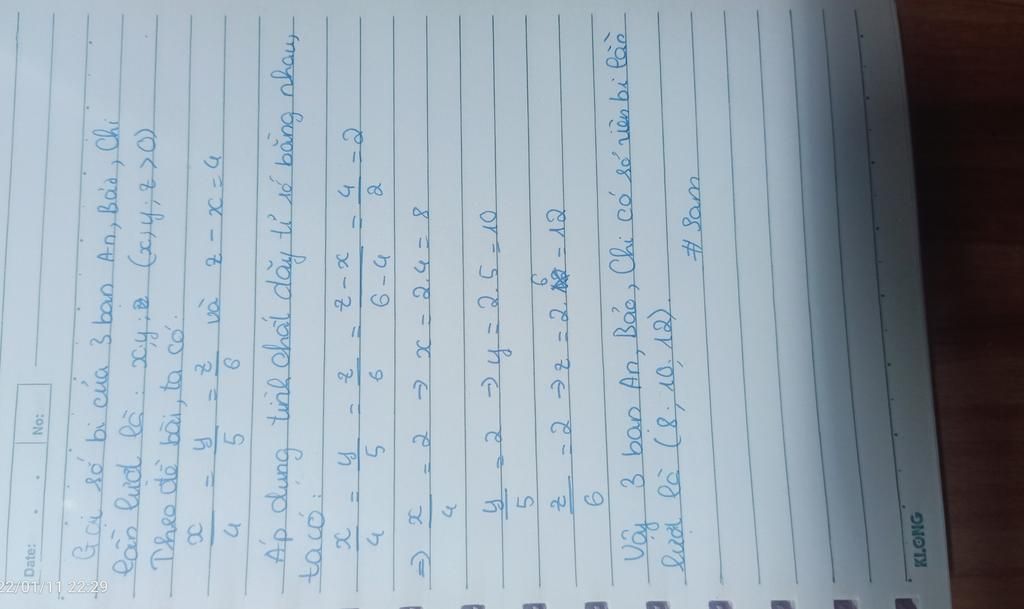 Date: No:
Gọi số bi của 3 bạn An, Bảo, Chi
lần lượt là: x; y; z (x; y; z > 0)
Theo đề bài, ta có:
x/4 = y/5 = z/6 và z - x = 4
Áp dụng tính chất dãy tỉ số bằng nhau,
ta có:
x/4 = y/5 = z/6 = z - x/6 - 4 = 4/2 = 2
=> x/4 = 2 → x = 2.4 = 8
y/5 = 2 → y = 2.5 = 10
z/6 = 2 → z = 2.6 = 12
Vậy 3 bạn An, Bảo, Chi có số viên bi lần
lượt là (8; 10; 12).
# Sam
KLONG
22/01/11 22:29